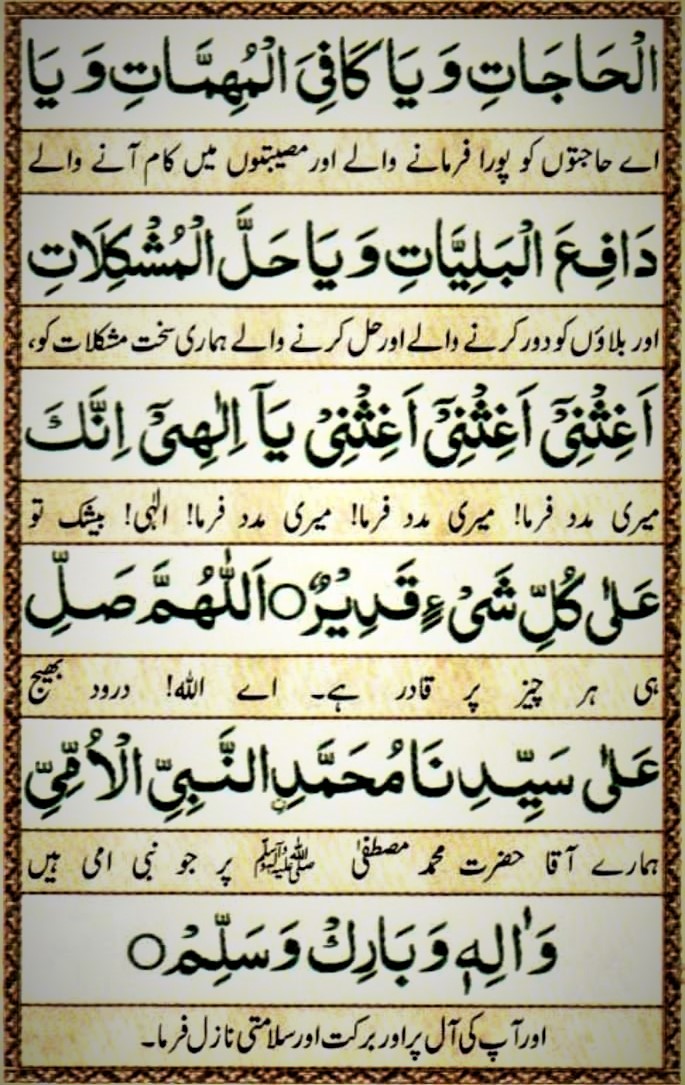 الْحَاجَاتِ وَ يَا كَافِیَ الْمُهِمَّاتِ وَ يَا
اے حاجتوں کو پورا فرمانے والے اور مصیبتوں میں کام آنے والے
دَافِعَ الْبَلِيَّاتِ وَ يَا حَلَّ الْمُشْكِلَاتِ
اور بلاؤں کو دور کرنے والے اور حل کرنے والے ہماری سخت مشکلات کو،
اَغِثْنِیْٓ اَغِثْنِیْٓ اَغِثْنِیْ يَآ اِلٰهِیْٓ اِنَّكَ
میری مدد فرما! میری مدد فرما! میری مدد فرما! الٰہی! بیشک تو
عَلٰی كُلِّ شَیْءٍ قَدِيْرٌ○ اَللّٰهُمَّ صَلِّ
ہی ہر چیز پر قادر ہے۔ اے اللہ! درود بھیج
عَلٰی سَيِّدِنَا مُحَمَّدِنِ النَّبِیِّ الْاُمِّیِّ
ہمارے آقا حضرت محمد مصطفیٰ ﷺ پر جو نبی امی ہیں
وَاٰلِهٖ وَ بَارِكْ وَ سَلِّمْ○
اور آپ کی آل پر اور برکت اور سلامتی نازل فرما۔